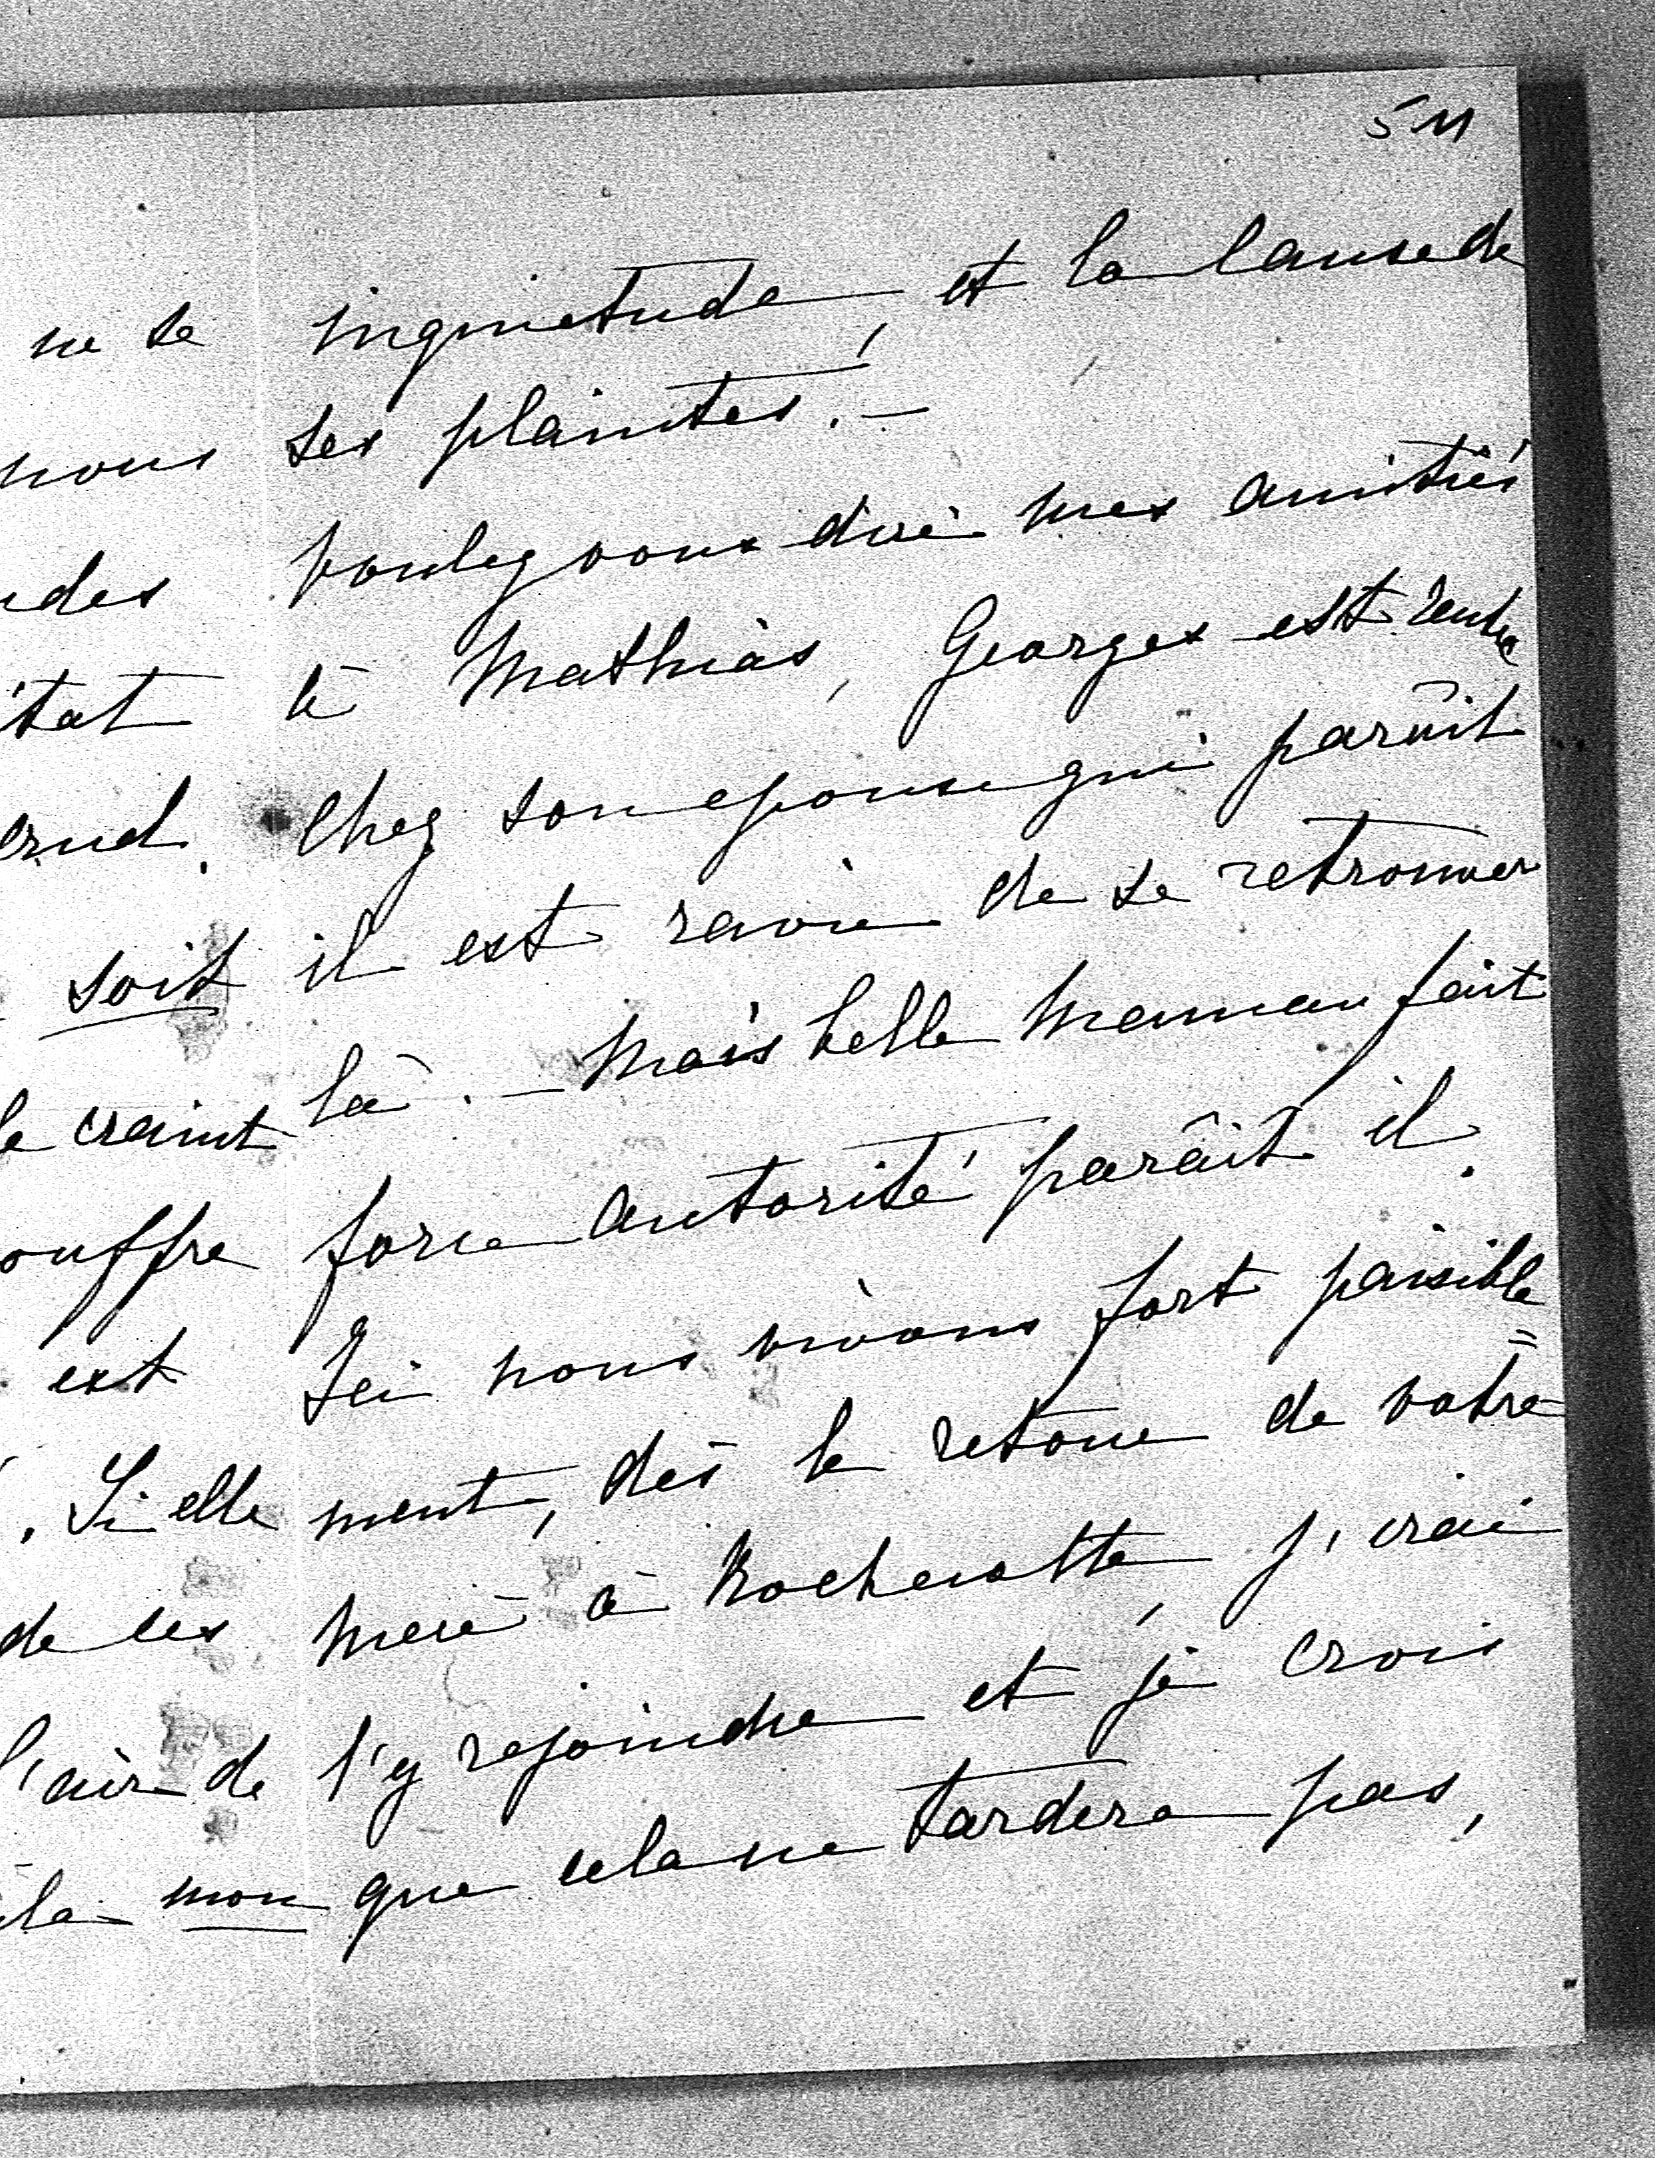 511
ne se
nous
des
état
soit
le craint
ouffre
est
. Si elle
de ces
l'air de
mon
inquietude, et la cause de
ses plaintes. —
Voulez vous dire mes amitiés
à Mathias, Georges est rentré
chez son epouse qui parait
il est ravie de se retrouver
là. — Mais belle maman fait
force autorité parâit il.
Ici nous vivons fort paisible=
ment, dès le retour de votre
mère à Rochecotte, j'irai
l'y rejoindre et je crois
que cela ne tardera pas,